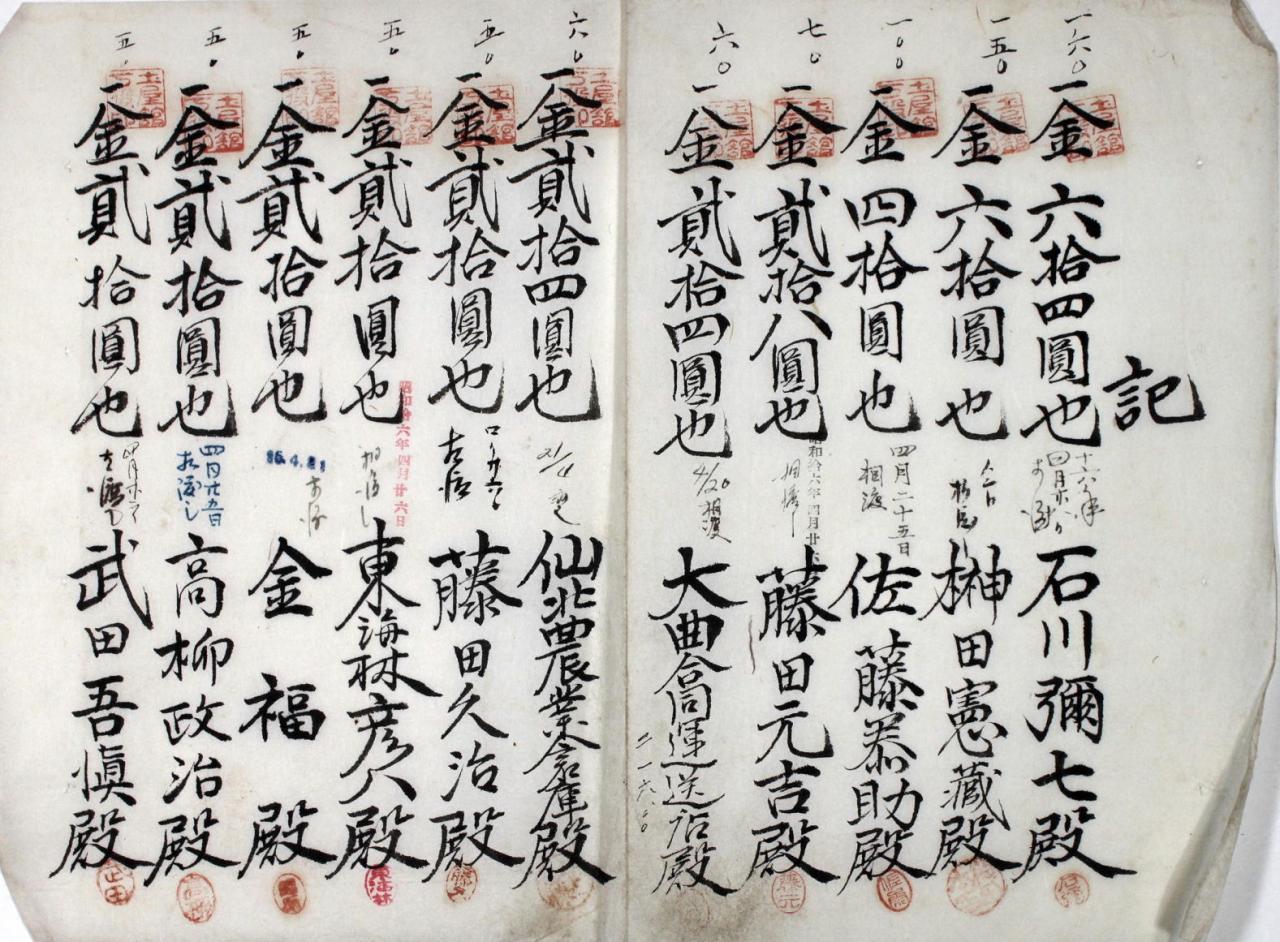 記
一、六〇
一金六拾四圓也
石川彌七殿
一五〇
一金六拾圓也
榊田憲藏殿
一〇〇
一金四拾圓也
四月二十五日
相渡
佐藤恭助殿
七〇
一金貳拾八圓也
昭和拾六年四月廿六日
藤田元吉殿
六〇
一金貳拾四圓也
4/20 相渡
大曲合同運送店殿
六〇
一金貳拾四圓也
仙北農業倉庫殿
五〇
一金貳拾圓也
藤田久治殿
五〇
一金貳拾圓也
昭和拾六年四月廿六日
東海林彦八殿
五〇
一金貳拾圓也
金福殿
五〇
一金貳拾圓也
四月廿五日
相渡し
高柳政治殿
五〇
一金貳拾圓也
武田吾愼殿